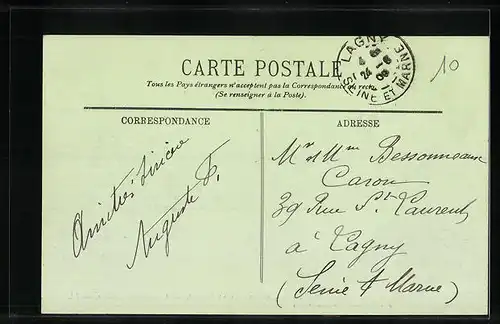 CARTE POSTALE
Tous les Pays étrangers n'acceptent pas la Correspondance au recto
(Se renseigner à la Poste).
LAGNY
SEINE ET MARNE
10
CORRESPONDANCE
ADRESSE
Amitiés sincères
Auguste F.
Mr et Mme Bessonneaux
Caron
39 Rue St Laurent
à Lagny
(Seine & Marne)